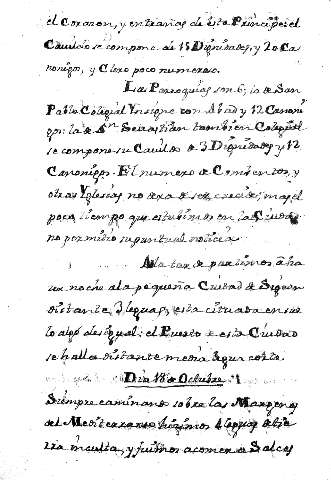 el Corazon, y entrañas de este Principe: el
Cavildo se compone de 15 Dignidades, y 20 Ca
nonigos, y Clero poco numeroso.
Las Parroquias son 6; la de San
Pablo Colegial Ynsigne con Abad y 12 Canoni
gos: la de Sn Sevastian tambien Colegial
se compone su Cavildo de 3 Dignidades y 12
Canonigos. El numero de Combentos, y
otras Yglesias no dexa de ser crecido; mas el
poco tiempo que estubimos en la Ciudad
no permitio su puntual noticia
A la tarde partimos a ha
cer noche a la pequeña Ciudad de
distante 3 leguas, esta situada en sue
lo algo desigual: el Puerto de esta Ciudad
se halla distante media legua corta.
Dia 18 de Octubre
Siempre caminando sobre las Margenes
del Mediterraneo hicimos 4 leguas de tie
rra inculta, y fuimos a comer a Salces